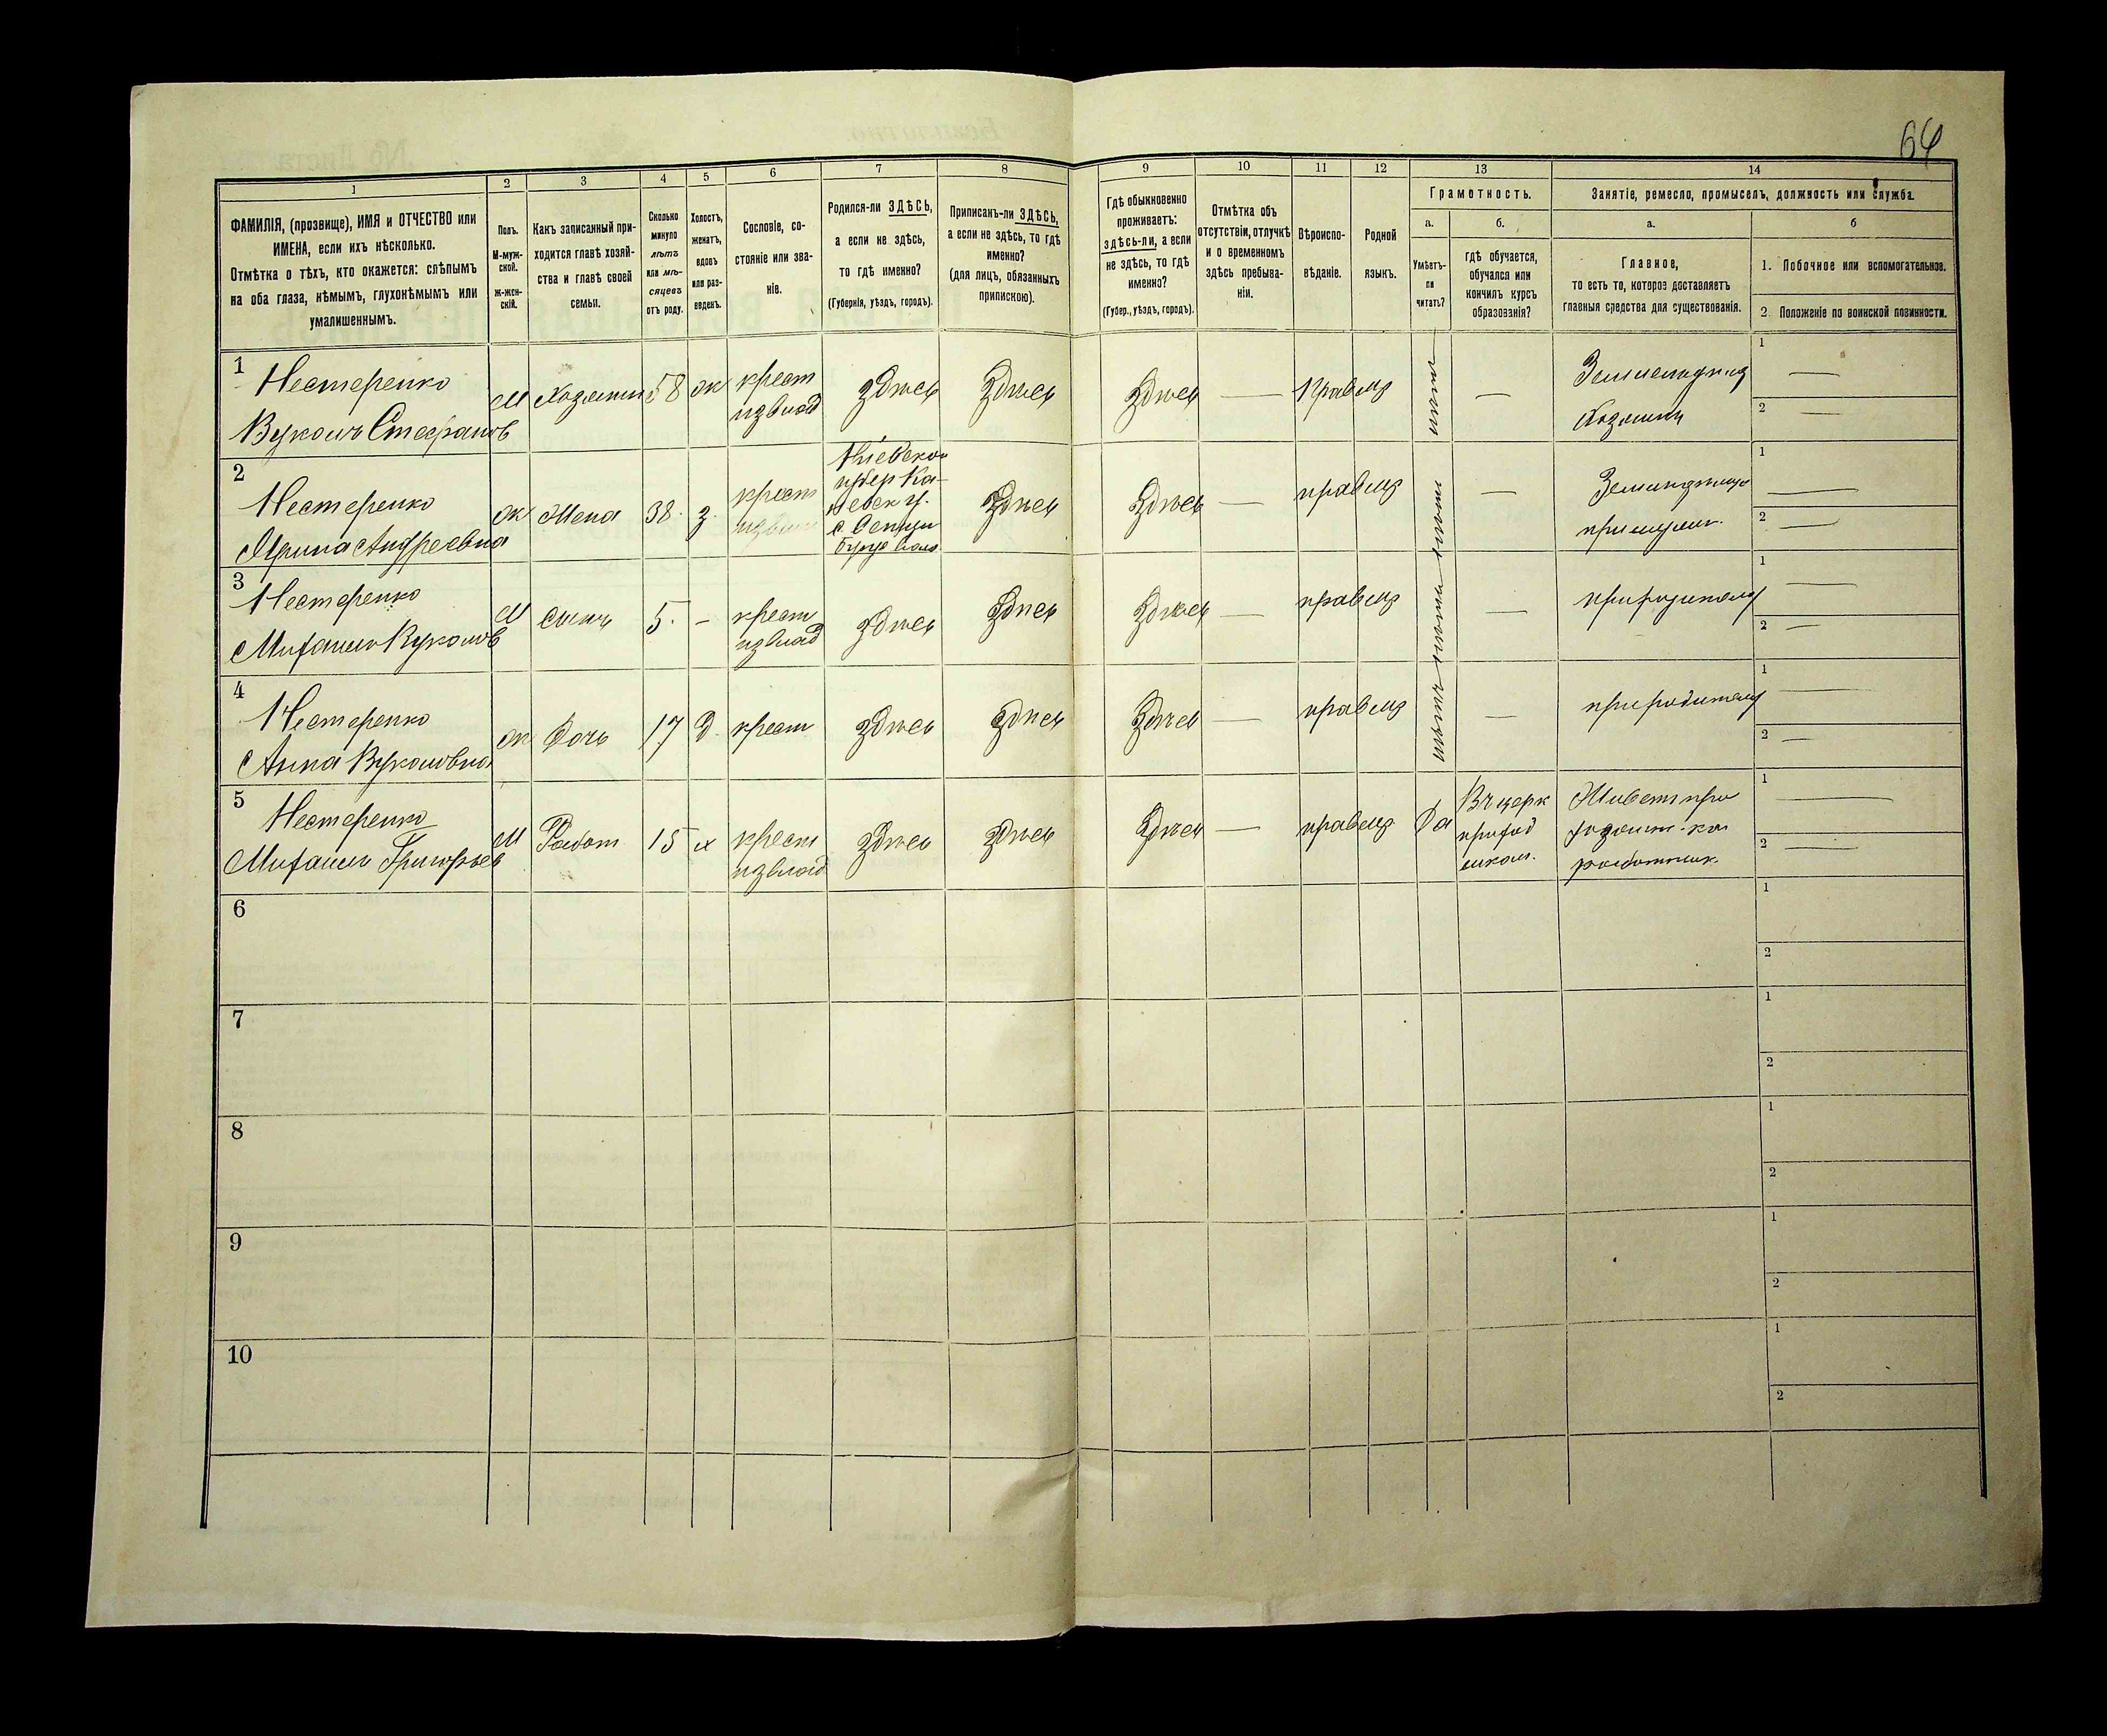 64
1 2 3 4 5 6 7 8 9 10 11 12 13 14
ФАМИЛІЯ, (прозвище), ИМЯ и ОТЧЕСТВО или
ИМЕНА, если ихъ нѣсколько.
Отмѣтка о тѣхъ, кто окажется: слѣпымъ
на оба глаза, нѣмымъ, глухонѣмымъ или
умалишеннымъ.
Полъ.
М-муж-
ской.
Ж-жен-
скій.
Какъ записанный при-
ходится главѣ хозяй-
ства и главѣ своей
семьи.
Сколько
минуло
лѣтъ
или мѣ-
сяцевъ
отъ роду.
Холостъ,
женатъ,
вдовъ
или раз-
веденъ.
Сословіе, со-
стояніе или зва-
ніе.
Родился-ли ЗДѢСЬ,
а если не здѣсь,
то гдѣ именно?
(Губернія, уѣздъ, городъ).
Приписанъ-ли ЗДѢСЬ,
а если не здѣсь, то гдѣ
именно?
(для лицъ, обязанныхъ
припискою).
Гдѣ обыкновенно
проживаетъ:
здѣсь-ли, а если
не здѣсь, то гдѣ
именно?
(Губер., уѣздъ, городъ).
Отмѣтка объ
отсутствіи, отлучкѣ
и о временномъ
здѣсь пребыва-
ніи.
Вѣроиспо-
вѣданіе.
Родной
языкъ.
Грамотность.
а.
Умѣетъ-
ли
читать?
б.
гдѣ обучается,
обучался или
кончилъ курсъ
образованія?
Занятіе, ремесло, промыселъ, должность или служба.
а.
Главное,
то есть то, которое доставляетъ
главныя средства для существованія.
б
1. Побочное или вспомогательное.
2. Положеніе по воинской повинности.
1
Нестеренко
Вуколъ Стефановъ
М
Хозяинъ
58
ж
крест
извлад
здѣсь
здѣсь
здѣсь
—
Правмз
нѣтъ
—
Земледѣлец
хозяинъ
1 —
2 —
2
Нестеренко
Ярина Андреевна
ж
Жена
38.
з.
крест
извлад
Кіевской
губер Ка-
невск у.
здѣсь
здѣсь
—
правмз
нѣтъ
—
1 —
2 —
3
Нестеренко
Михаилъ Вуколовъ
М
сынъ
5.
-
крест
извлад
здѣсь
здѣсь
здѣсь
—
правмз
нѣтъ
—
при родителях
1 —
2 —
4
Нестеренко
Анна Вуколовна
ж
Дочь
17
Д.
крест
здѣсь
здѣсь
здѣсь
—
правмз
нѣтъ
—
при родителях
1 —
2 —
5
Нестеренко
Михаилъ Григорьев
М
Работ
15
х
крест
извлад
здѣсь
здѣсь
здѣсь
—
правмз
Да
Въ церк
приход
школ.
Живет при
хозяин. как
работник.
1 —
2 —
6
1
2
7
1
2
8
1
2
9
1
2
10
1
2